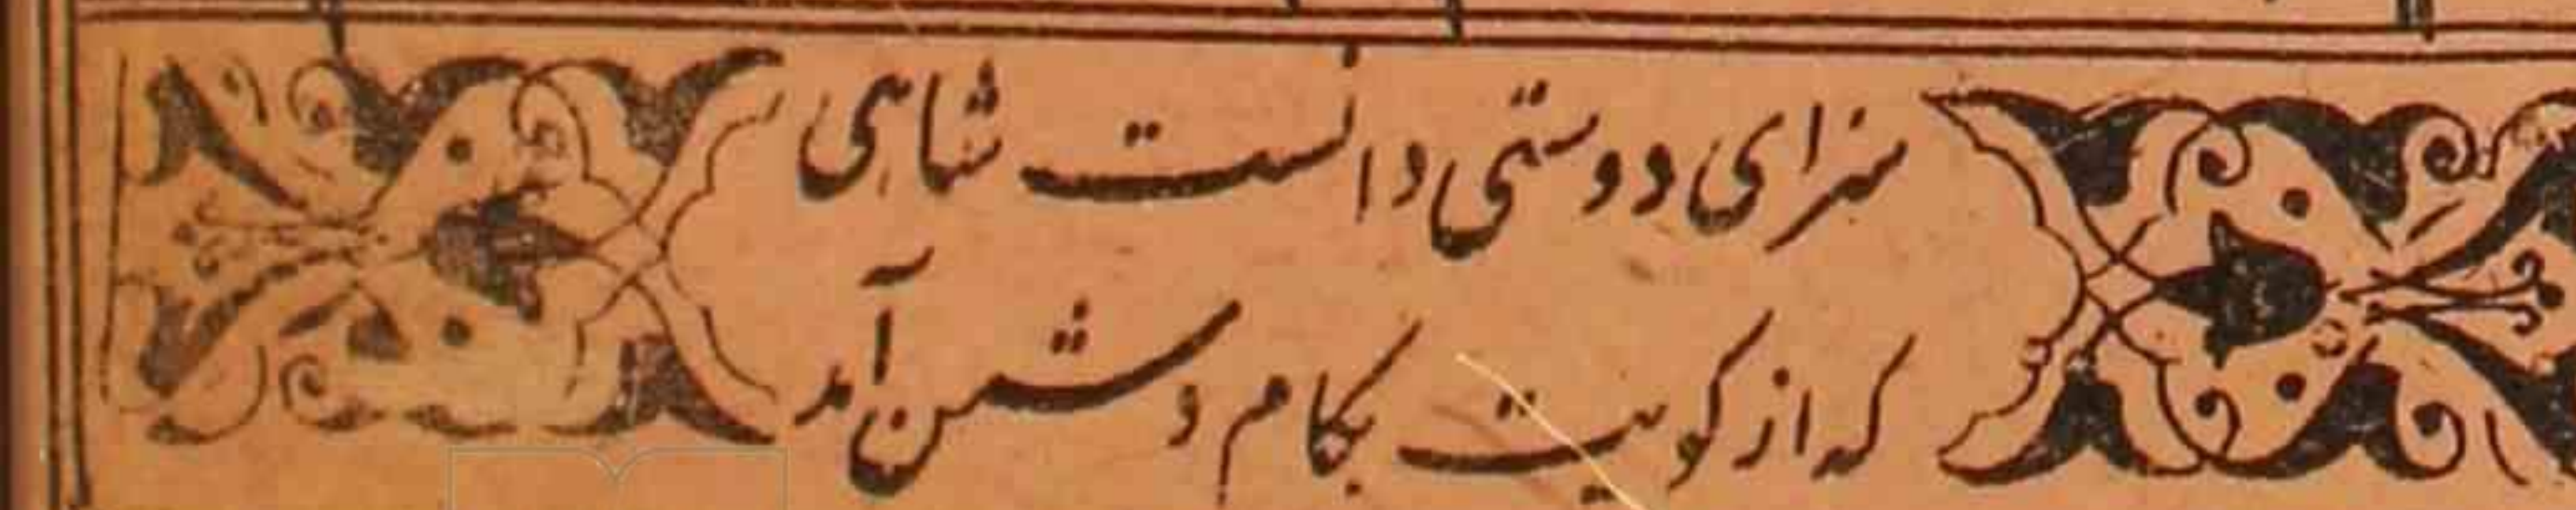 سزای دوستی دانست شاهی
که از کویت بکام دشمن آمد